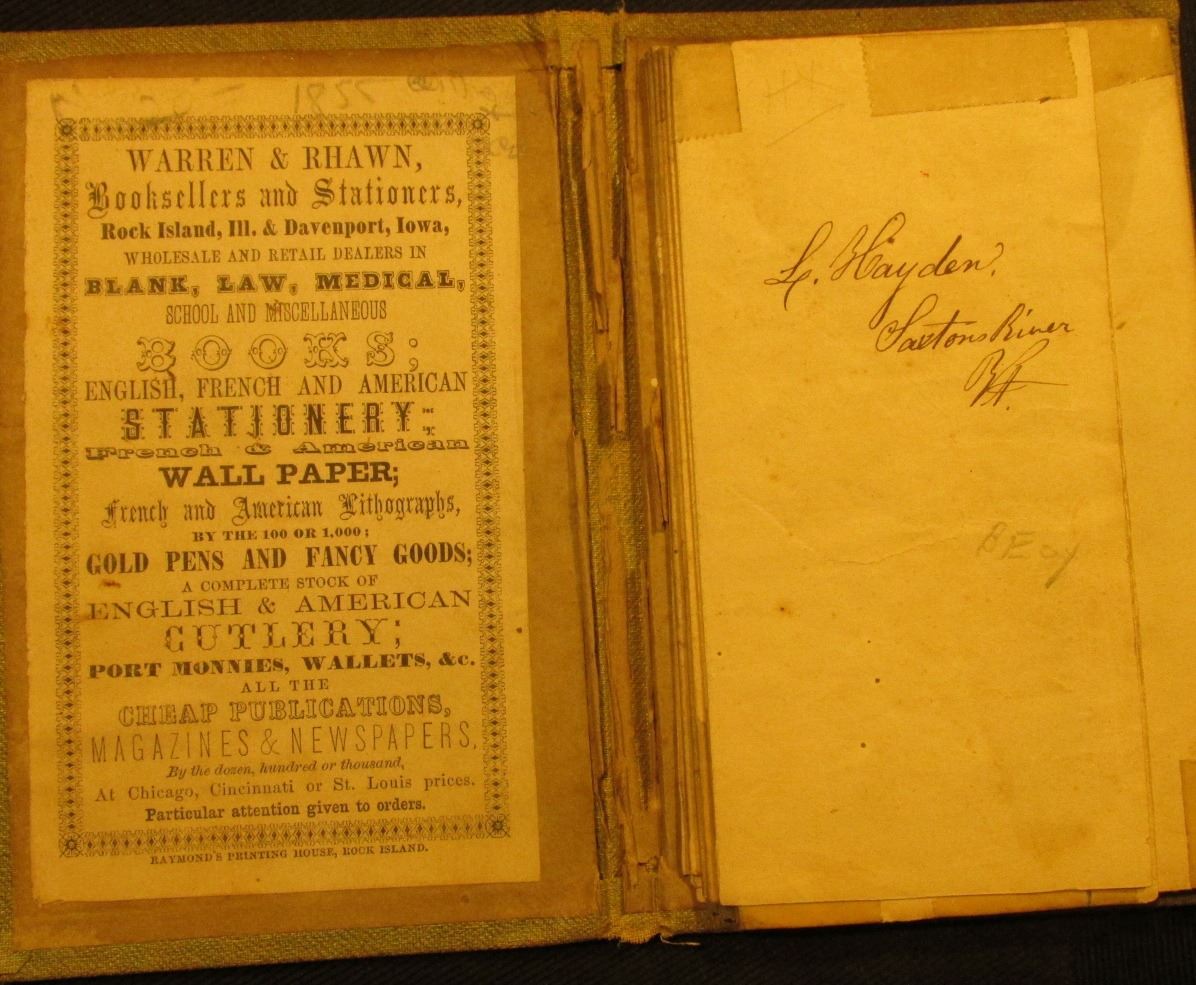 WARREN & RHAWN,
Booksellers and Stationers,
Rock Island, Ill. & Davenport, Iowa,
WHOLESALE AND RETAIL DEALERS IN
BLANK, LAW, MEDICAL,
SCHOOL AND MISCELLANEOUS
BOOKS;
ENGLISH, FRENCH AND AMERICAN
STATIONERY;
French & American
WALL PAPER;
French and American Lithographs,
BY THE 100 OR 1,000;
GOLD PENS AND FANCY GOODS;
A COMPLETE STOCK OF
ENGLISH & AMERICAN
CUTLERY;
PORT MONNIES, WALLETS, &c.
ALL THE
CHEAP PUBLICATIONS,
MAGAZINES & NEWSPAPERS,
By the dozen, hundred or thousand,
At Chicago, Cincinnati or St. Louis prices.
Particular attention given to orders.
RAYMOND'S PRINTING HOUSE, ROCK ISLAND.
L. Hayden.
Saxtons River
Vt.